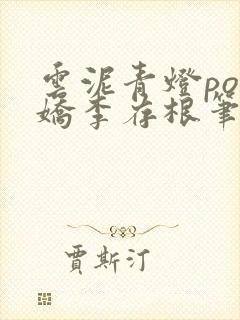 雲泥青燈po
嬌李存根筆
賈斯汀